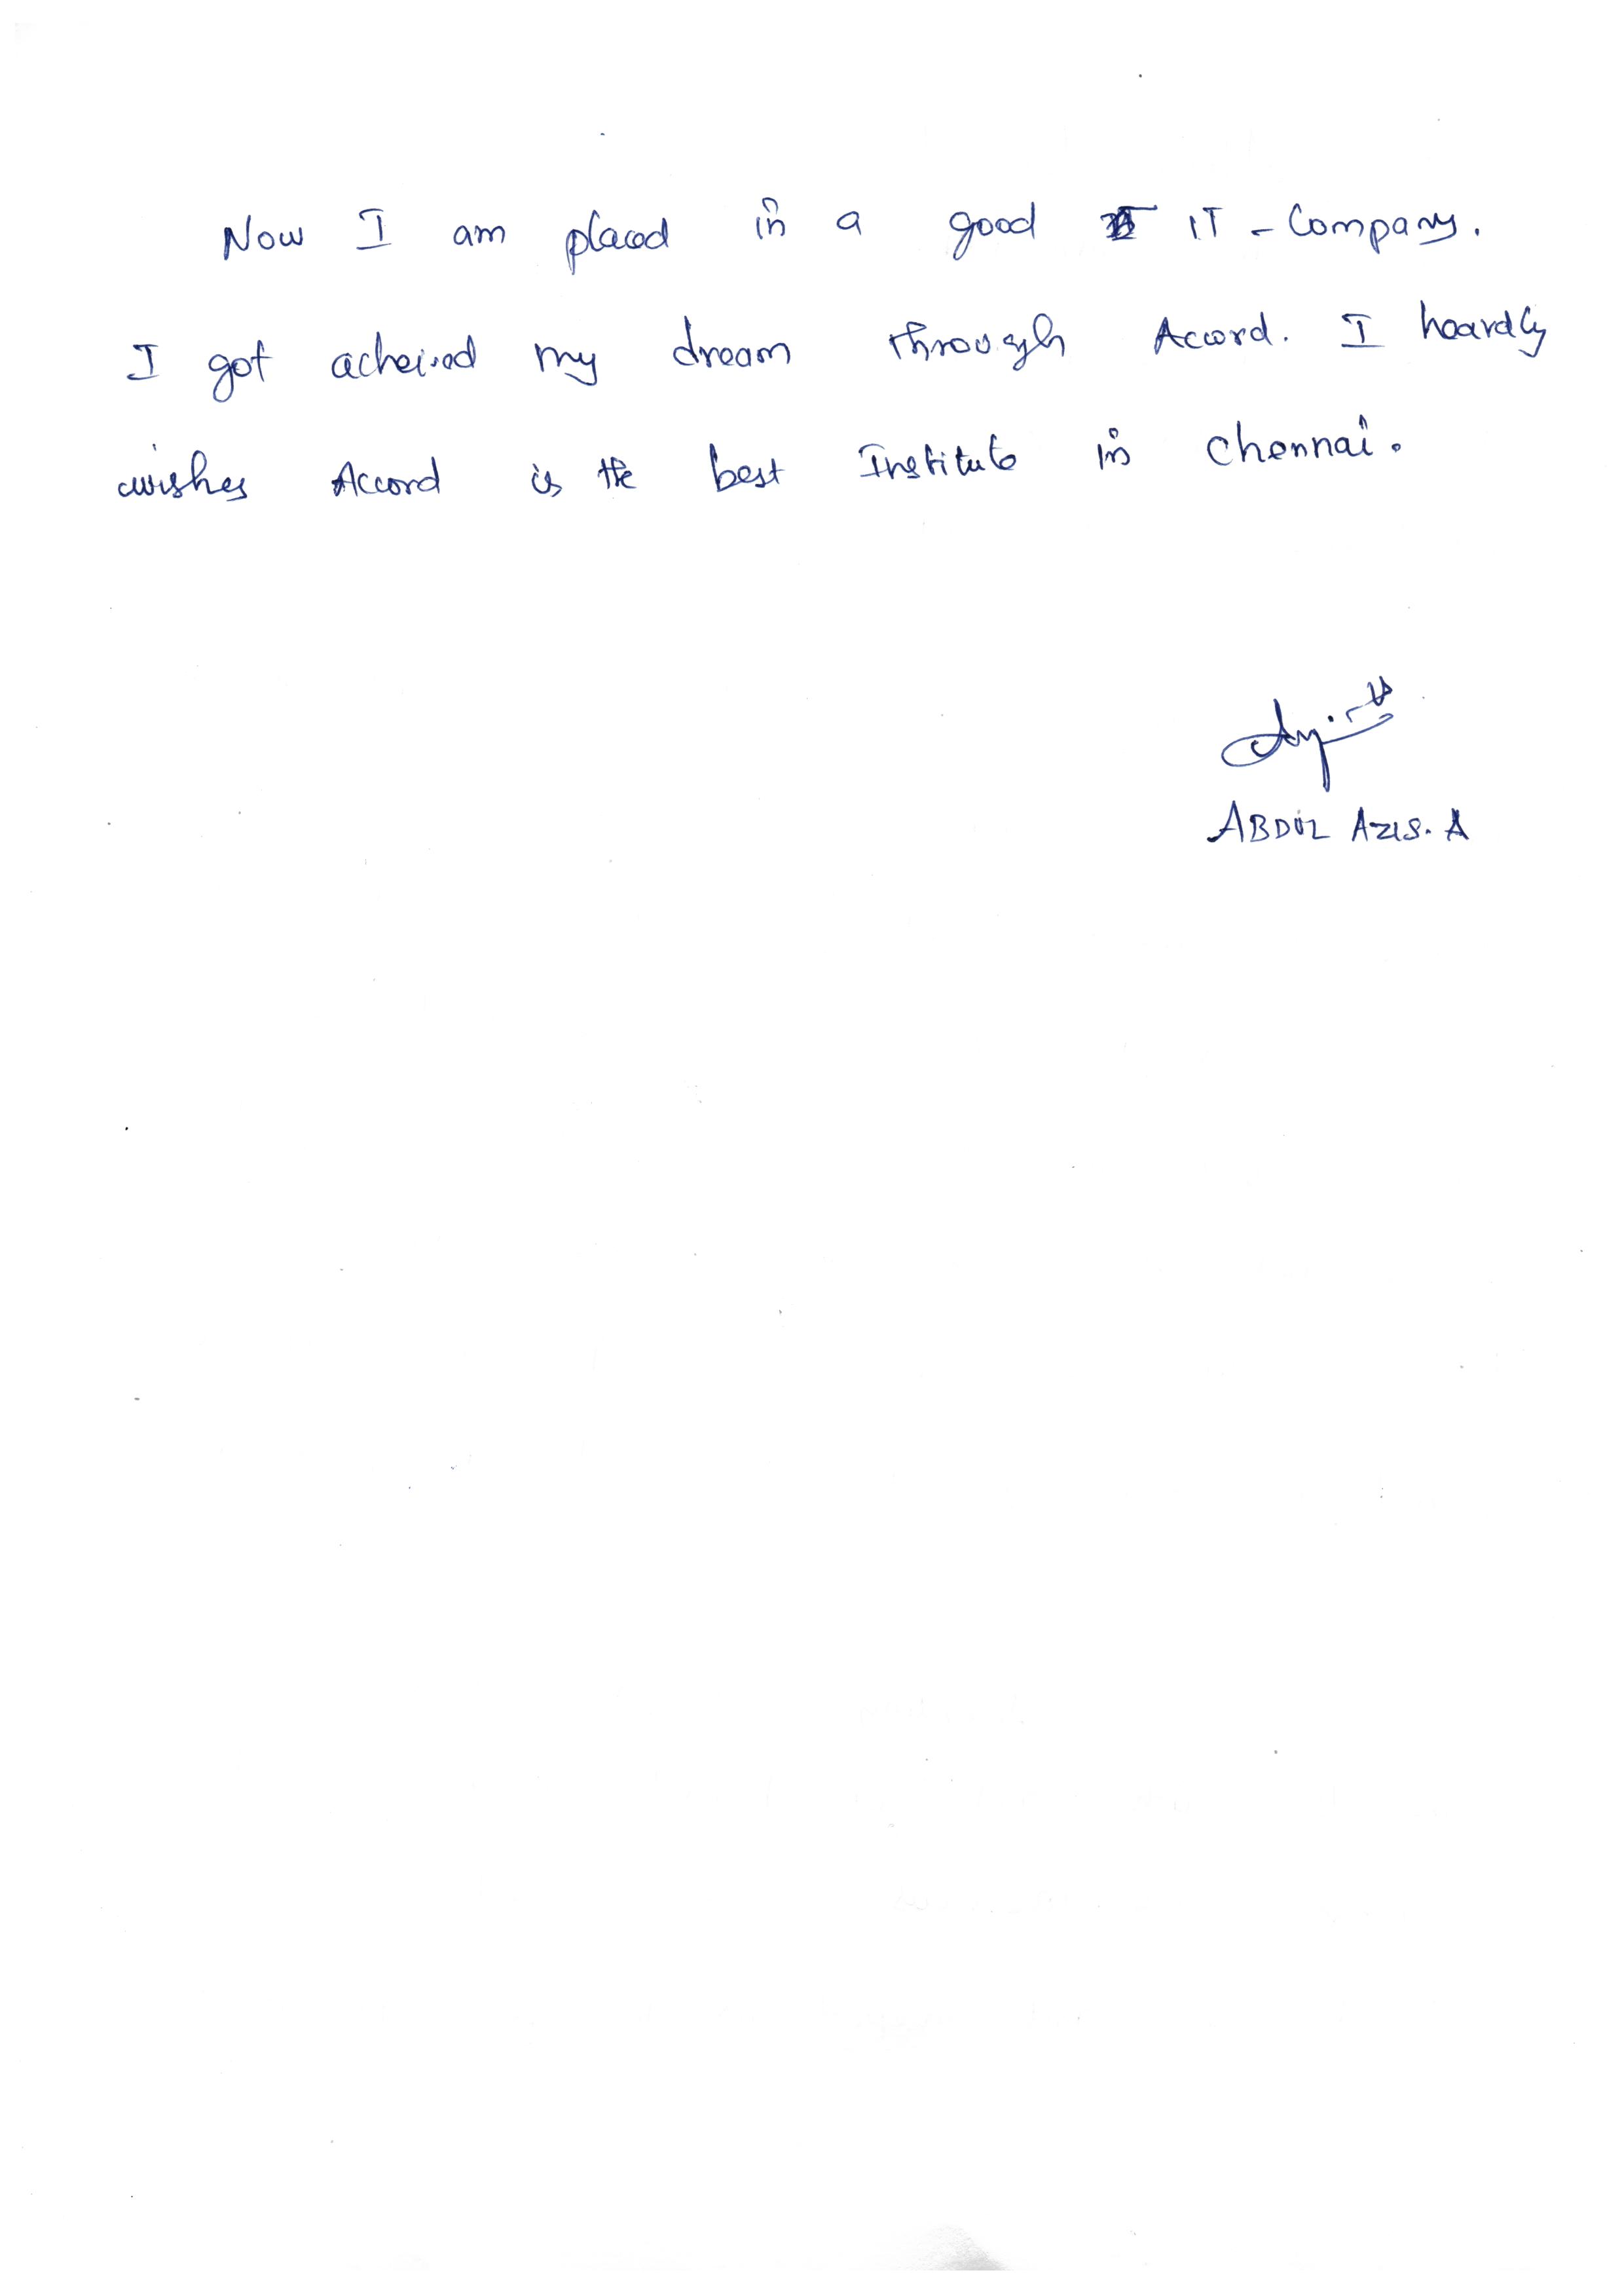 Now I am placed in a good IT - Company.
I got acheived my dream through Accord. I heardly
wishes Accord is the best Institute in Chennai.
ABDUL AZIS. A